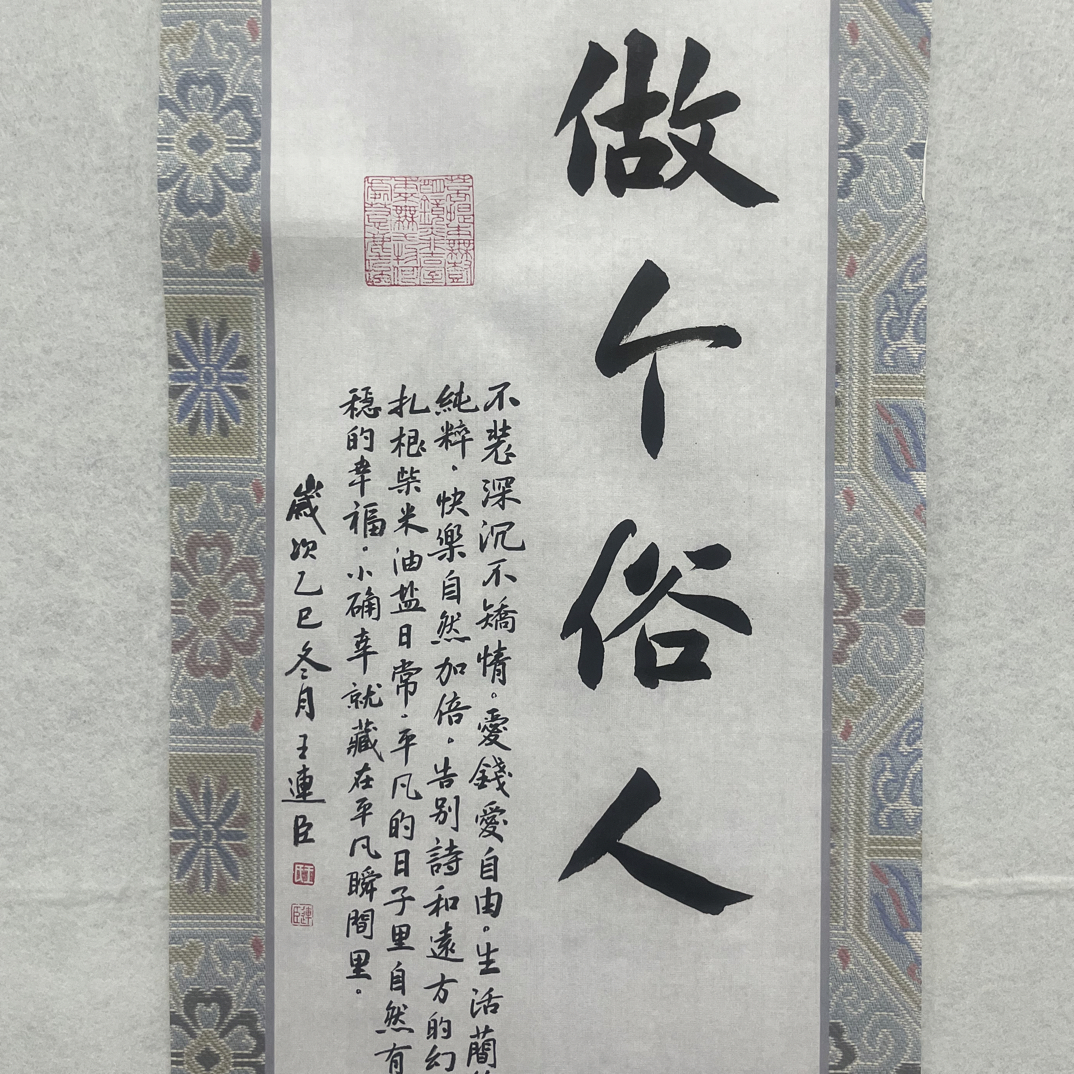 做个俗人
不装深沉不矯情。愛錢愛自由。生活蕳
純粹，快樂自然加倍。告别詩和遠方的幻
扎根柴米油盐日常，平凡的日子里自然有
穏的幸福。小确幸就藏在平凡瞬間里。
歲次乙巳冬月王連臣